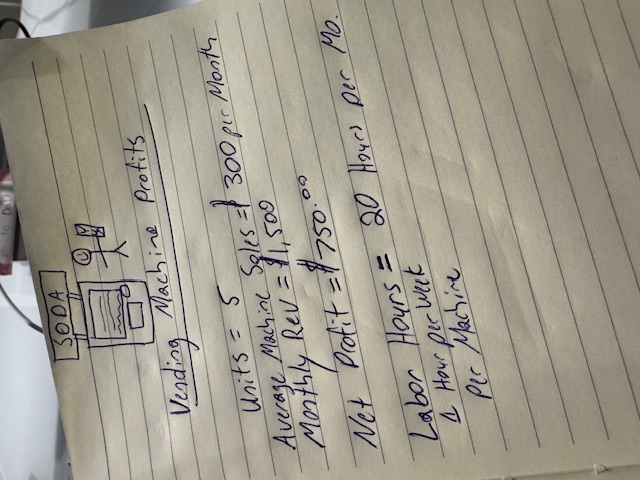 SODA
Vending Machine Profits
Units = 5
Average Machine Sales = $300 per Month
Monthly Rev = $1,500
Net Profit = $750.00
Labor Hours = 20 Hours per Mo.
1 Hour per week
Per Machine